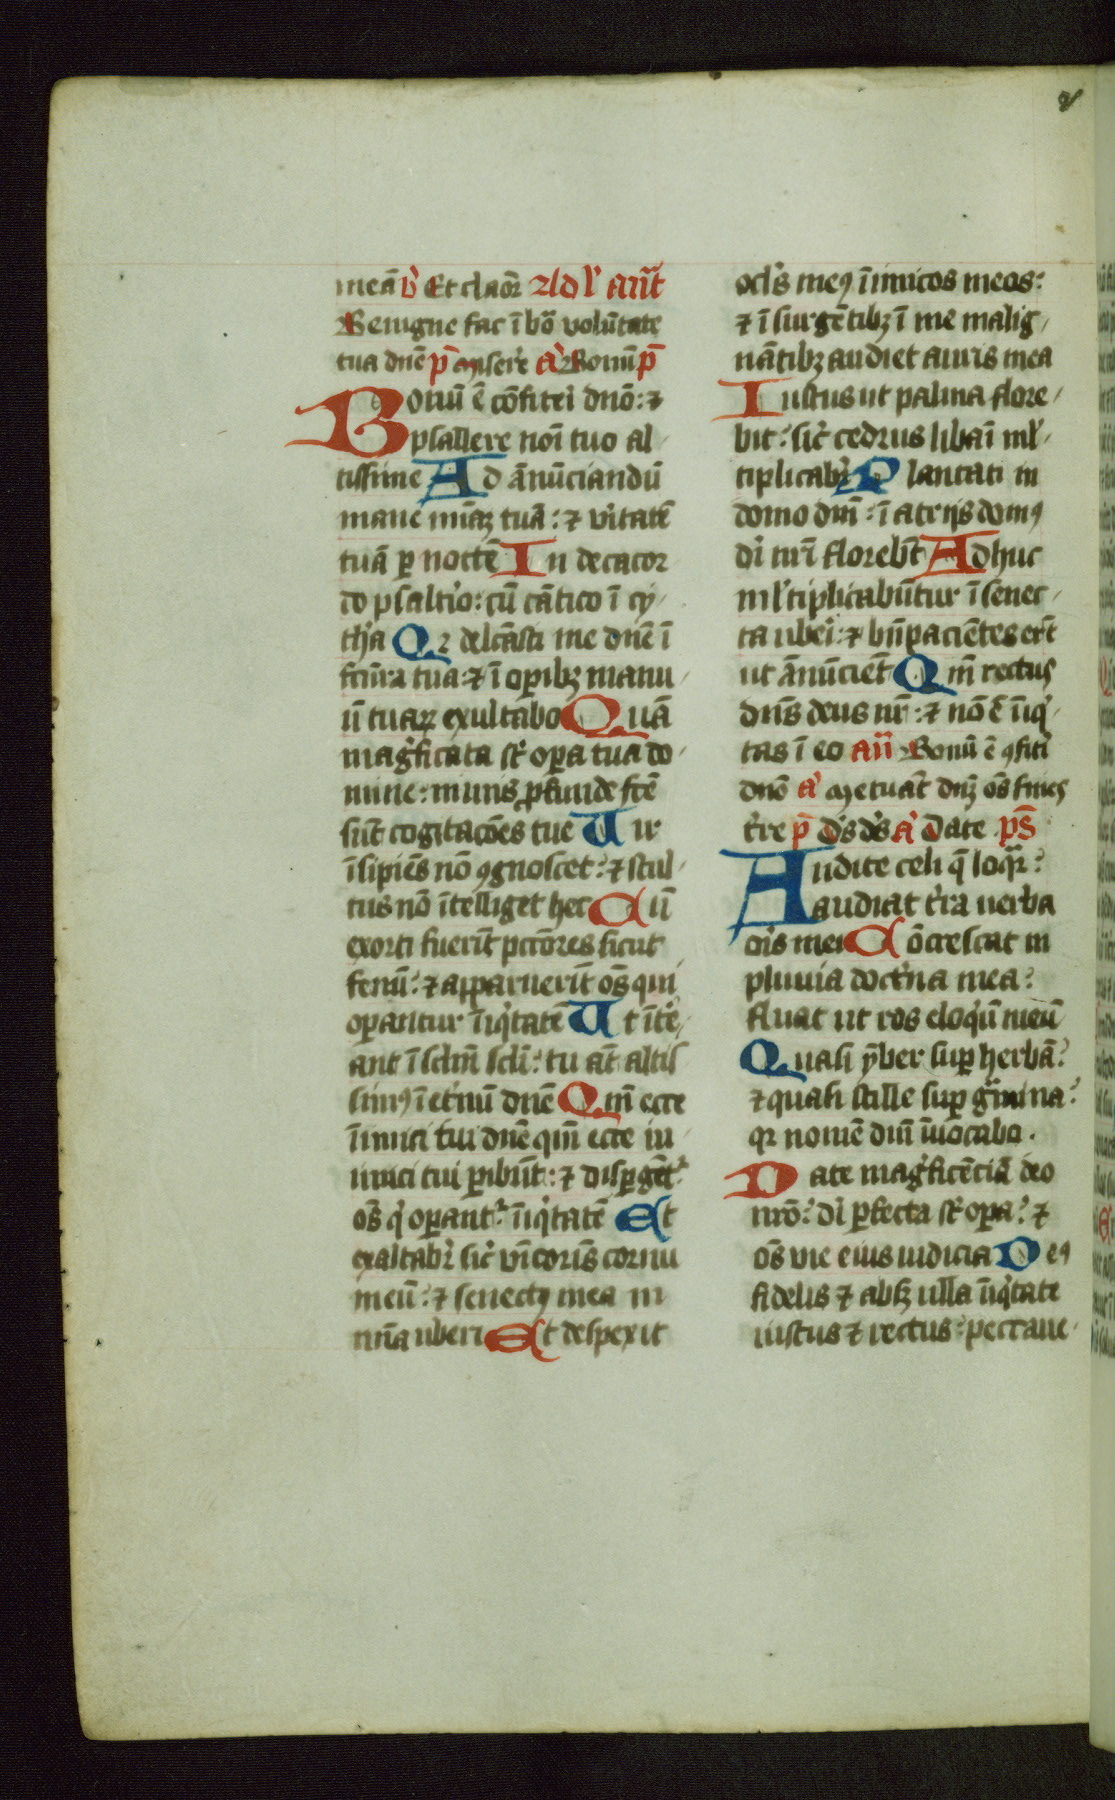 meā v̓ Et claor̄ Ad l̓ an̄t
Benigne fac ī bōa volūtate
tua dnē p̄s Mise̓re a̓ Bonū p̄s
Bonū ē cōfiteı̄ dnō: ⁊
psallere noı̄ tuo al-
tissime Ad ānūciandū
mane mīaꝫ tuā: ⁊ vi̓tatē
tuā ꝑ noctē In decacor
do psalti̓o: cū cātico ī cy-
th̓a Qꝛ delcāsti me dnē ī
fctūra tua: ⁊ ī oꝑibꝫ manu-
ū tuaꝝ exultabo Quā
mag̓ficata st̄ oꝑa tua do-
mine: nimis ꝓfūnde fctē
sūt cogitacōes tue Uir
īsipiēs nō ꝯgnoscet: ⁊ stul-
tus nō ītelliget hec Cū
exorti fuerīt pctōres sicut
fenū: ⁊ apparuerīt oēs qui
oꝑantur īiq̓tatē Ut ītē-
ant ī sclm̄ scłi: tu āt altis
simꝯ ī et̓nū dnē Qm̄ ecce
īimici tui dnē qm̄ ecce in-
imici tui ꝑibūt: ⁊ disꝑgēt̓
oēs q̓ oꝑant̓ īiq̓tatē Et
exaltabr̓ sic̓ vnicorīs cornu
meū: ⁊ senectꝯ mea in
mīa uberi Et despexit
ocl̓s meꝯ īimicos meos:
⁊ ī surgētibꝫ ī me malig-
nātibꝫ audiet auris mea
Iustus ut palma flore-
bit: sic̓ cedrus libaı̄ ml̓-
tiplicabr̓ Plantati in
domo dnı̄: ī atrijs domꝯ
di̓ nrı̄ florebūt Adhuc
ml̓tiplicabūtur ī senec-
ta ubeı̓: ⁊ bn̄ paciētes er̄t
ut ānūciēt Qm̄ rectus
dn̄s deus nr̄: ⁊ nō ē īiq̓
tas ī eo an̄ Bonū ē ꝯfiti̓
dnō a̓ Metuāt dnꝫ oēs fines
t̓re p̄s Ds̓ ds̓ a̓ Date p̄s
Audite celi q̄ loqr̓:
audiat t̓ra uerba
oi̓s mei Cōcrescat in
pluuia doct̓na mea:
fluat ut ros eloq̓ū meū
Quasi ẏber suꝑ herbā:
⁊ quasi stille suꝑ g̓mina:
qꝛ nomē dnı̄ īuocabo.
Date mag̓ficēciā deo
nrō: di̓ ꝑfecta st̄ oꝑa: ⁊
oēs vie eius iudicia Deꝯ
fidelis ⁊ absqꝫ ulla īiq̓tate
iustus ⁊ rectus: peccaue-